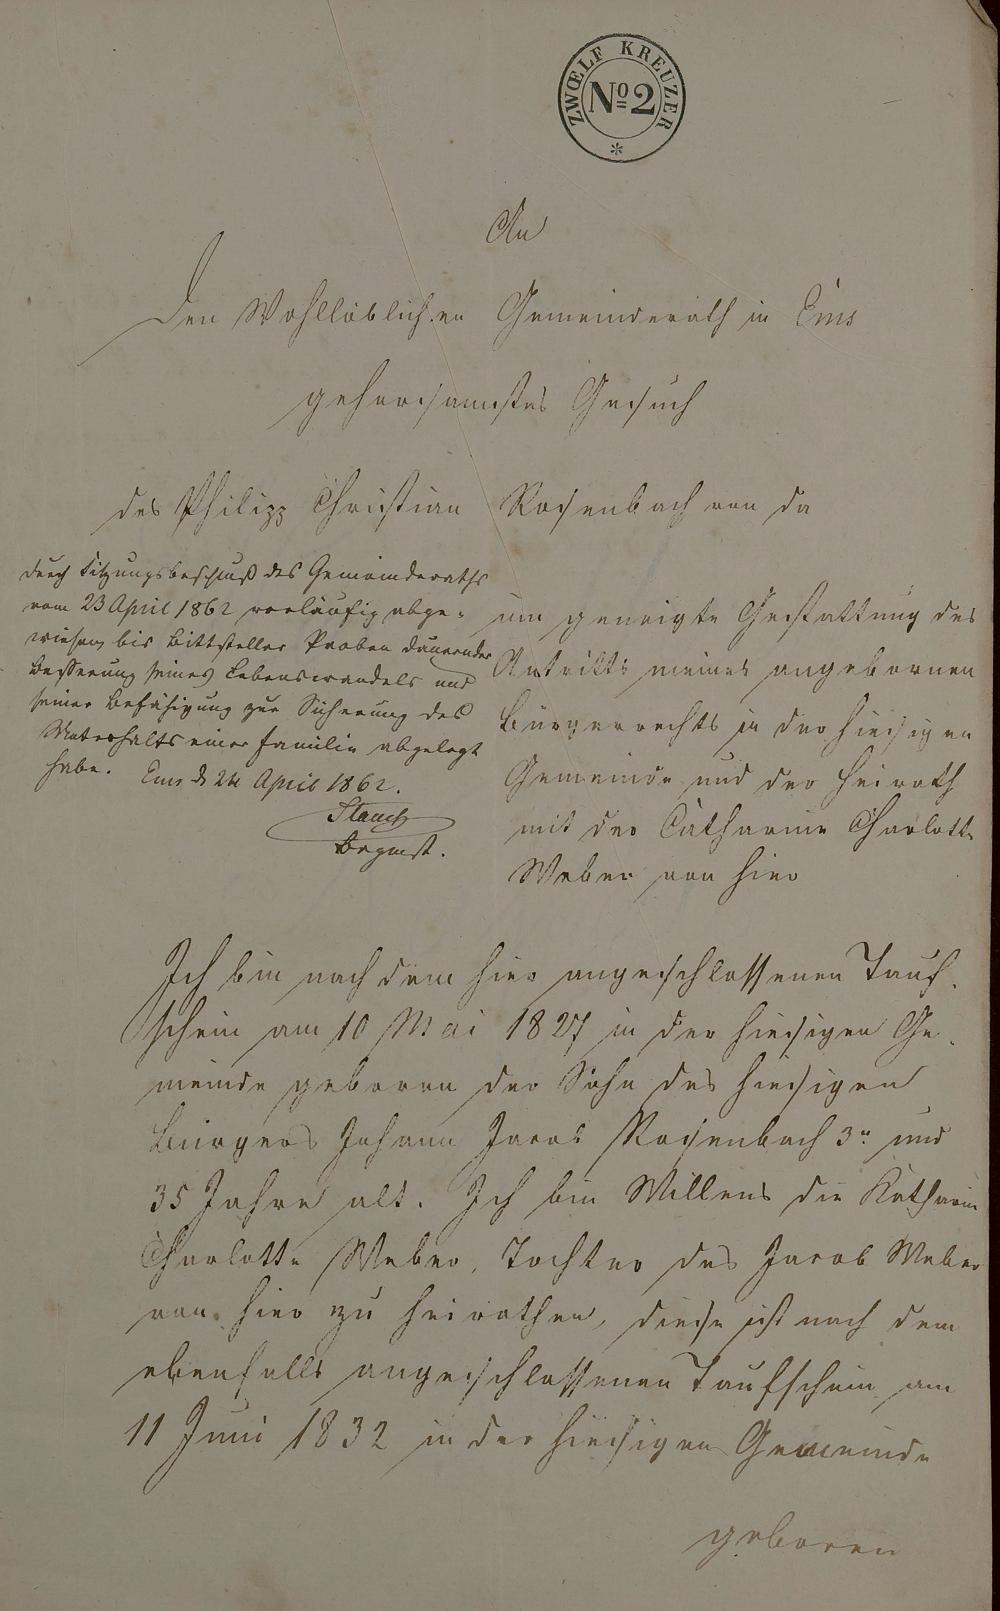 ZWŒLF KREUZER
No 2
An
den Wohllöblichen Gemeinderath in Ems
gehorsamstes Gesuch
des Philipp Christian Rosenbach von da
um geneigte Gestattung des
Antritts meines angebornen
Bürgerrechts in der hiesigen
Gemeinde und der Heirath
mit der Catharine Charlotte
Weber von hier
durch Sitzungsbeschluß des Gemeinderaths
vom 23 April 1862 vorläufig abge-
wiesen, bis Bittsteller Proben dauernder
Besserung seines Lebenswandels und
seiner Befähigung zur Sicherung des
Unterhalts einer Familie abgelegt
habe. Ems d 24 April 1862.
Ich bin nach dem hier angeschlossenen Tauf-
schein am 10 Mai 1827 in der hiesigen Ge-
meinde geboren der Sohn des hiesigen
Bürgers Johann Jacob Rosenbach 3r und
35 Jahre alt. Ich bin Willens die Katharine
Charlotte Weber, Tochter des Jacob Weber
von hier zu heirathen, diese ist nach dem
ebenfalls angeschlossenen Taufschein am
11 Juni 1832 in der hiesigen Gemeinde
geboren